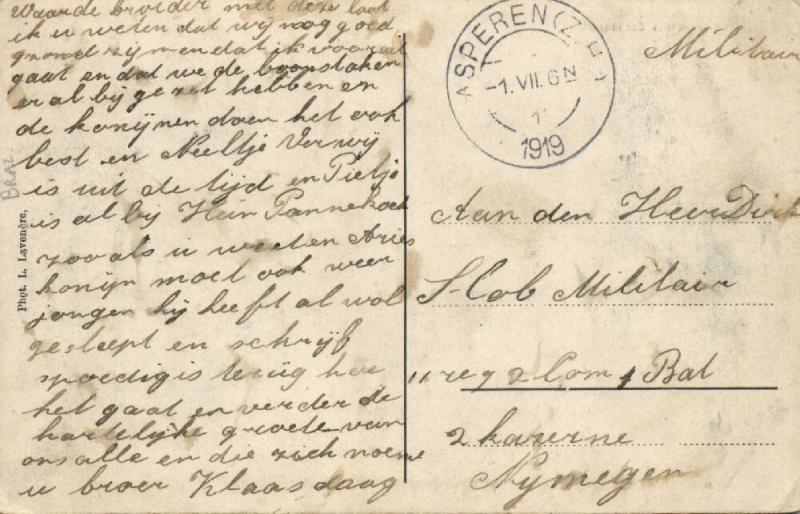 Waarde broeder met deze laat
ik u weten dat wij nog goed
gezond zijn en dat ik vooruit
gaat en dat we de boonstaken
er al bij gezet hebben en
de konijnen doen het ook
best en Neeltje Verwij
is uit de tijd en Pietje
is al bij Hein Pannekoek
zooals u weeten Aries
konijn moet ook weer
jongen hij heeft al wol
gesleept en schrijf
spoedig is terug hoe
het gaat en verder de
hartelijke groete van
ons alle en die zich noeme
u broer Klaas daag
BRAZ
Phot. L. Lavenère.
ASPEREN (Z.H.)
-1.VII.6N
1919
Militair
Aan den Heer Dirk
Slob Militair
11 reg 2 Com 1 Bat
2 kazerne
Nymegen